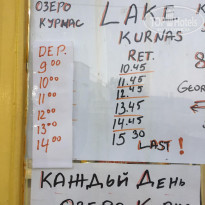 ОЗЕРО
КУРНАС
LAKE
KURNAS
DEP.
9 00
10 00
11 00
12 00
13 00
14 00
RET.
10.45
11.45
12.45
13.45
14.45
15 30
LAST !
GEOR
КАЖДЫЙ ДЕНЬ